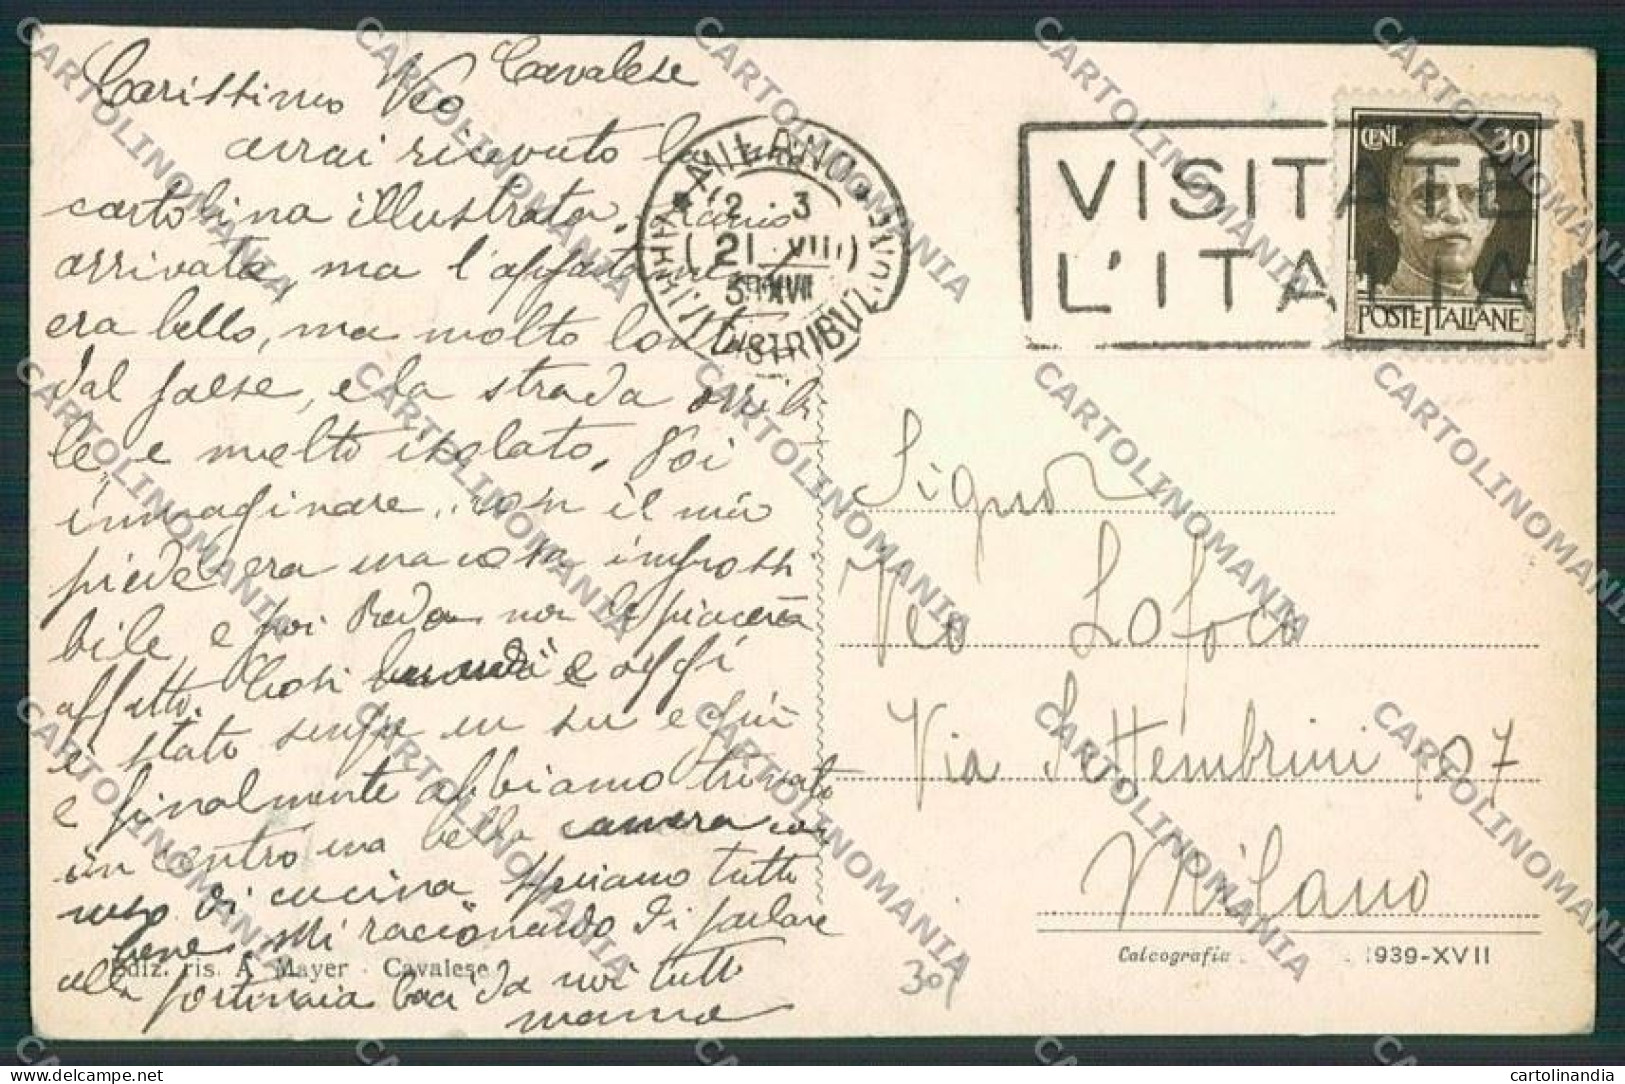 Cavalese
Carissimo Veo
avrai ricevuto la mia
cartolina illustrata.
arrivata, ma l'appartame
era bello, ma molto lont
dal paese, e la strada orribi
le, e molto isolato. Poi
immaginare, con il mio
piede era una cosa impossi
bile, e poi non le piaceva
affatto. Così e oggi
è stato in su e giù
e finalmente abbiamo trovato
in centro una bella camera con
uso di cucina, speriamo tutto
bene. Mi raccomando di parlare
alla portinaia baci da noi tutti
mamma
Ediz. ris. A. Mayer - Cavalese
MILANO
21 VIII
39 XVII
DISTRIBUZ
VISITATE
L'ITALIA
CENT. 30
POSTE ITALIANE
Signor
Veo Lofoco
Via Settembrini 107
Milano
Calcografia 1939-XVII
30/
CARTOLINOMANIA
delcampe.net
cartolinandia